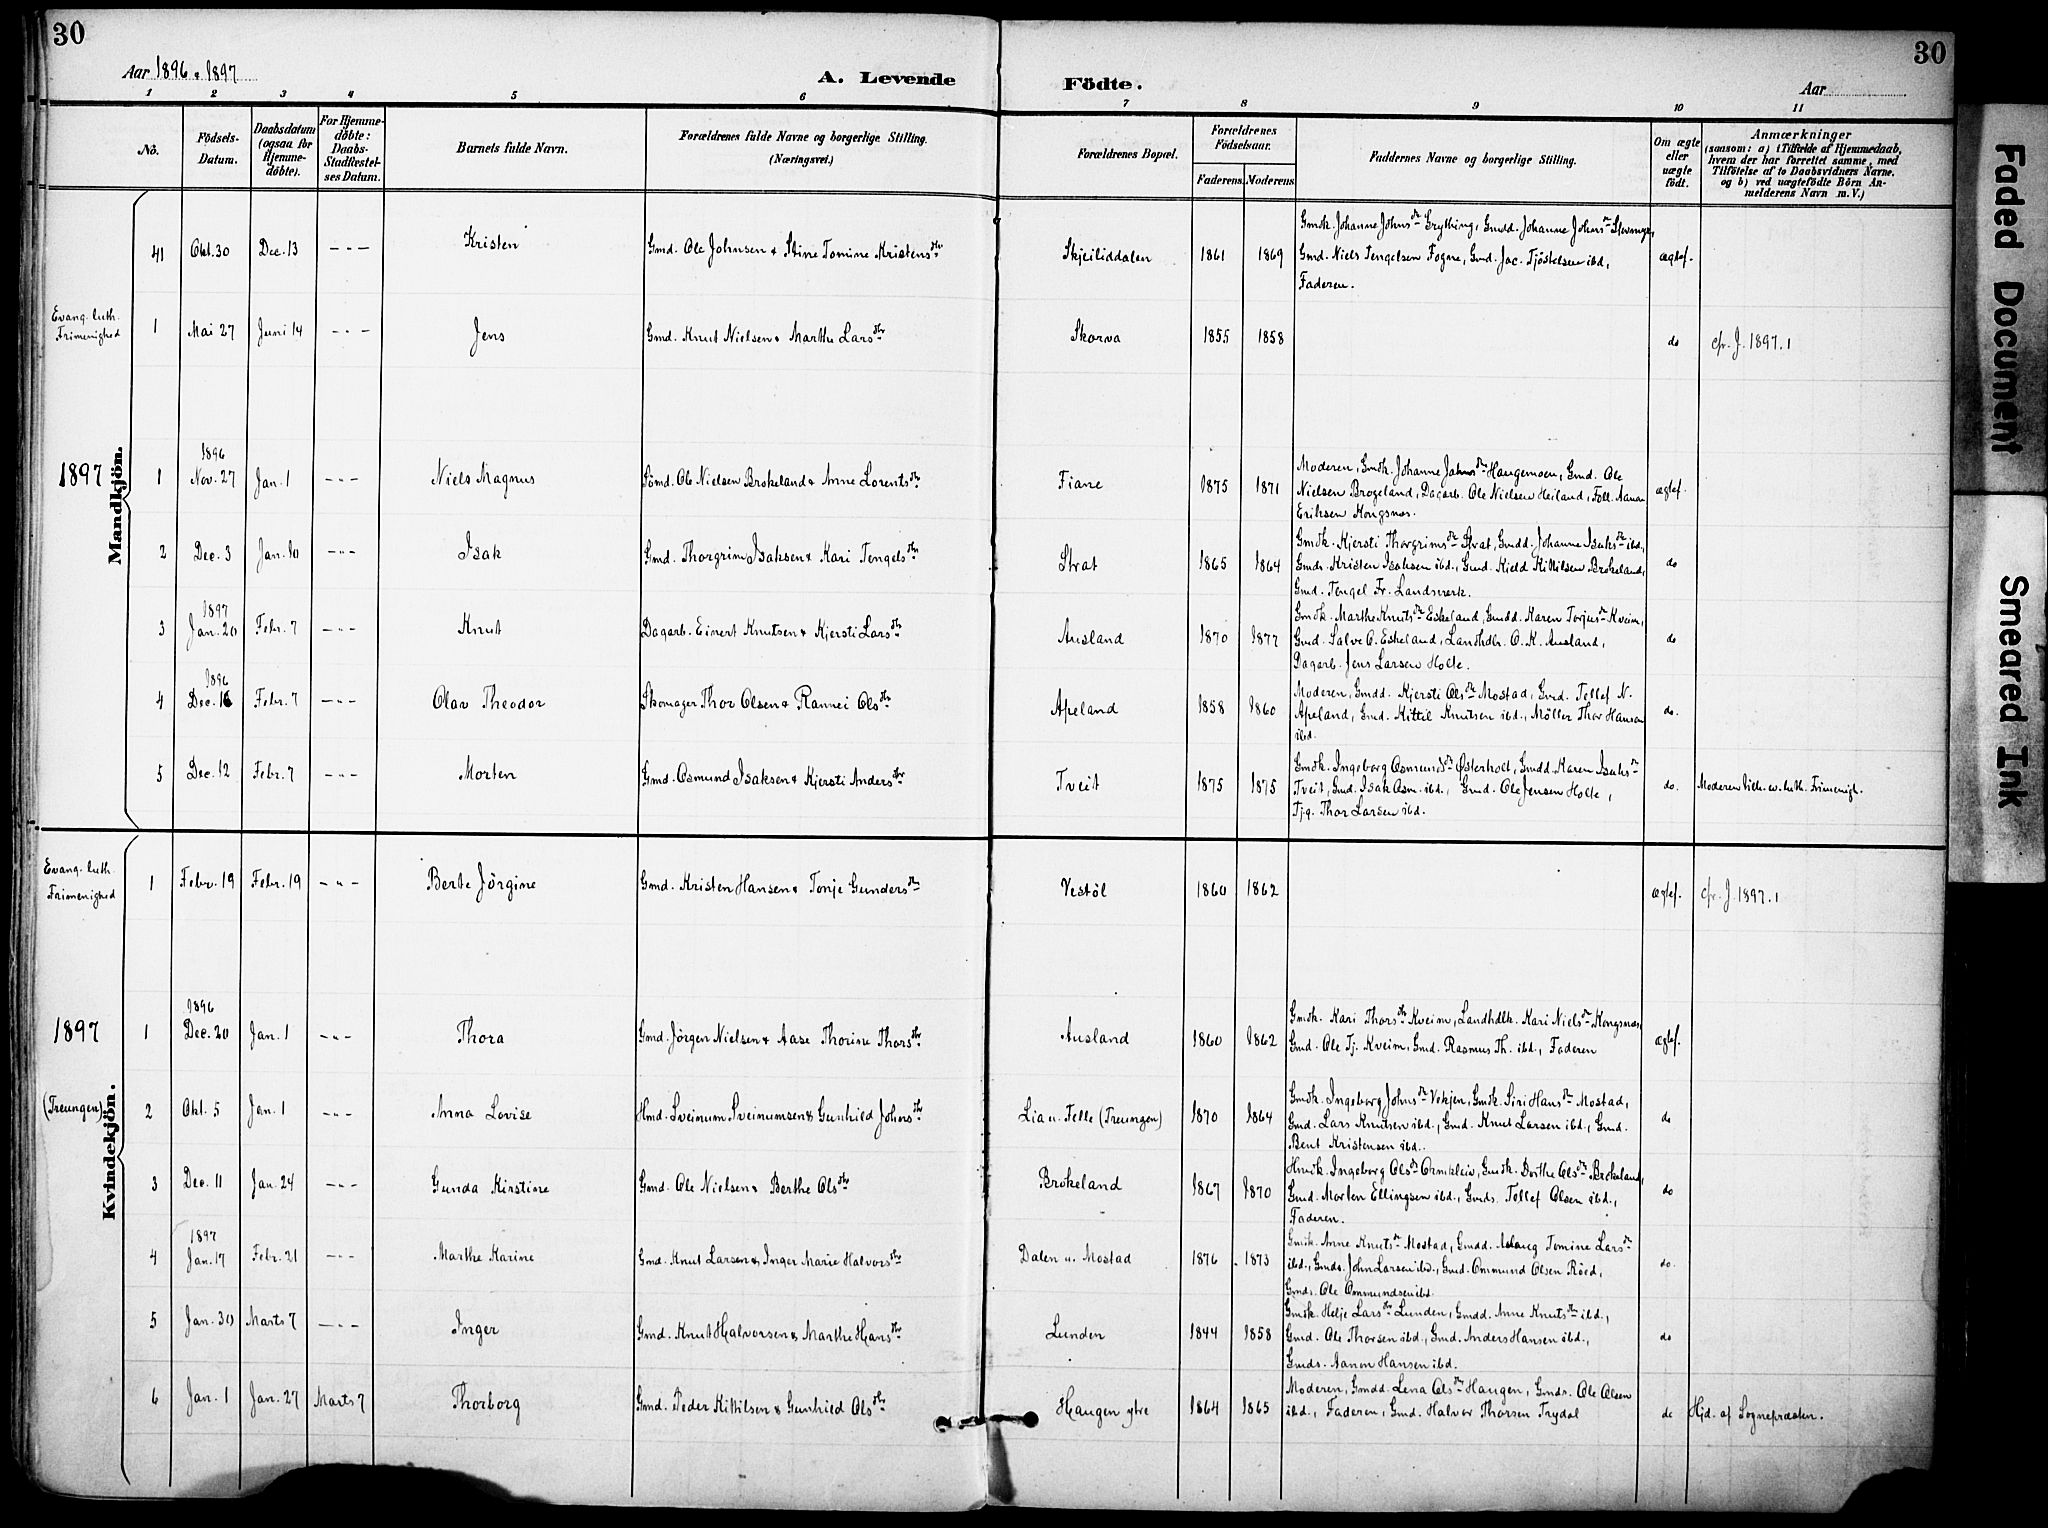 30
30
Aar 1896 & 1897
A. Levende Födte.
Aar
1 2 3 4 5 6 7 8 9 10 11
No.
Födsels-Datum.
Daabsdatum (ogsaa for Hjemme-döbte).
For Hjemme-döbte: Daabs-Stadfæstel-ses Datum.
Barnets fulde Navn.
Forældrenes fulde Navne og borgerlige Stilling. (Næringsvei.)
Forældrenes Bopæl.
Forældrenes Födselsaar.
Faderens. Moderens.
Faddernes Navne og borgerlige Stilling.
Om ægte eller uægte födt.
Anmærkninger (saasom: a) i Tilfælde af Hjemmedaab, hvem der har forrettet samme, med Tilföielse af to Daabsvidners Navne, og b) ved uægtefödte Börn An-melderens Navn m.V.)
41 Okt. 30 Dec. 13 - - - Kristen Gmd. Ole Johnsen & Stine Tomine Kristensdtr Skjeiliddalen 1861 1869
Gmdk. Johanne Johnsdtr Grything, Gmdd. Johanne Johnsdtr
Gmd. Niels Tengelsen Fogne, Gmd. Jac. Tjöstelsen ibd.,
Faderen.
ægtef.
Evang. luth.
Frimenighed
1 Mai 27 Juni 14 - - - Jens Gmd. Knut Nielsen & Marthe Larsdtr Skorva 1855 1858 do cfr. J. 1897.1
Mandkjön.
1897
1 1896 Nov. 27 Jan. 1 - - - Niels Magnus Sömd. Ole Nielsen Brokeland & Anne Lorentsdtr Fiane 1875 1871
Moderen, Gmdk. Johanne Johnsdtr Haugemoen, Gmd. Ole
Nielsen Brogeland, Dagarb. Ole Nielsen Heiland, Foll. Aanon
Eriksen Kongsnæs.
ægtef.
2 Dec. 3 Jan. 10 - - - Isak Gmd. Thorgrim Isaksen & Kari Tengelsdtr Strat 1865 1864
Gmdk. Kjersti Thorgrimsdtr Strat, Gmdd. Johanne Isaksdtr ibd.,
Gmds. Kristen Isaksen ibd., Gmd. Kield Kittilsen Brokeland,
Gmd. Tengel Fr. Landsverk.
do
3 1897 Jan. 20 Febr. 7 - - - Knut Dagarb. Einert Knutsen & Kjersti Larsdtr Ausland 1870 1877
Gmdk. Marthe Knutsdtr Eskeland, Gmdd. Karen Torjusdtr Kveim,
Gmd. Salve O. Eskeland, Landhdlr. O. K. Ausland,
Dagarb. Jens Larsen Holte.
do
4 1896 Dec. 16 Febr. 7 - - - Olav Theodor Skomager Thor Olsen & Rannei Olsdtr Apeland 1858 1860
Moderen, Gmdd. Kjersti Olsdtr Mostad, Gmd. Tellef N.
Apeland, Gmd. Kittil Knutsen ibd., Möller Thor Hansen
ibd.
do.
5 Dec. 12 Febr. 7 - - - Morten Gmd. Osmund Isaksen & Kjersti Andersdtr Tveit 1875 1875
Gmdk. Ingeborg Osmundsdtr Østerholt, Gmdd. Karen Isaksdtr
Tveit, Gmd. Isak Osm. ibd., Gmd. Ole Jensen Holte,
Tj.g. Thor Larsen ibd.
do. Moderen tilh. ev. luth. Frimenigh.
Evang. luth.
Frimenighed
1 Febr. 19 Febr. 19 - - - Berte Jörgine Gmd. Kristen Hansen & Tonje Gundersdtr Vestöl 1860 1862 ægtef. cfr. J. 1897.1
Kvindekjön.
1897
1 1896 Dec. 20 Jan. 1 - - - Thora Gmd. Jörgen Nielsen & Aase Thorine Thorsdtr Ausland 1860 1862
Gmdk. Kari Thorsdtr Kveim, Landhdlk. Kari Nielsdtr Kongsnæs,
Gmd. Ole Tj. Kveim, Gmd. Rasmus Th. ibd., Faderen
ægtef.
(Treungen)
2 Okt. 5 Jan. 1 - - - Anna Lovise Hmd. Sveinum Sveinumsen & Gunhild Johnsdtr Lia u. Felle (Treungen) 1870 1864
Gmdk. Ingeborg Johnsdtr Vehjen, Gmdk. Siri Hansdtr Mostad,
Gmd. Lars Knutsen ibd., Gmd. Knut Larsen ibd., Gmd.
Bent Kristensen ibd.
do
3 Dec. 11 Jan. 24 - - - Gunda Kirstine Gmd. Ole Nielsen & Berthe Olsdtr Brokeland 1867 1870
Hmdk. Ingeborg Olsdtr Ormkleiv, Gmdk. Dorthe Olsdtr Brokeland,
Gmd. Morten Ellingsen ibd., Gmds. Tellef Olsen ibd.,
Faderen.
do
4 1897 Jan. 17 Febr. 21 - - - Marthe Karine Gmd. Knut Larsen & Inger Marie Halvorsdtr Dalen u. Mostad 1876 1873
Gmdk. Anne Knutsdtr Mostad, Gmdd. Aslaug Tomine Larsdtr
ibd., Gmds. John Larsen ibd., Gmd. Ommund Olsen Röed,
Gmds. Ole Ommundsen ibd.
do.
5 Jan. 30 Marts 7 - - - Inger Gmd. Knut Halvorsen & Marthe Hansdtr Lunden 1844 1858
Gmdk. Helje Larsdtr Lunden, Gmdd. Anne Knutsdtr ibd.,
Gmd. Ole Thorsen ibd., Gmd. Anders Hansen ibd.,
Gmds. Aanon Hansen ibd.
do
6 Jan. 1 Jan. 27 Marts 7 Thorborg Gmd. Peder Kittilsen & Gunhild Olsdtr Haugen ytre 1864 1865
Moderen, Gmdd. Lena Olsdtr Haugen, Gmds. Ole Olsen
ibd., Faderen, Gmd. Halvor Thorsen Trydal
do Hjd. af Sognepræsten.
Faded Document
Smeared Ink